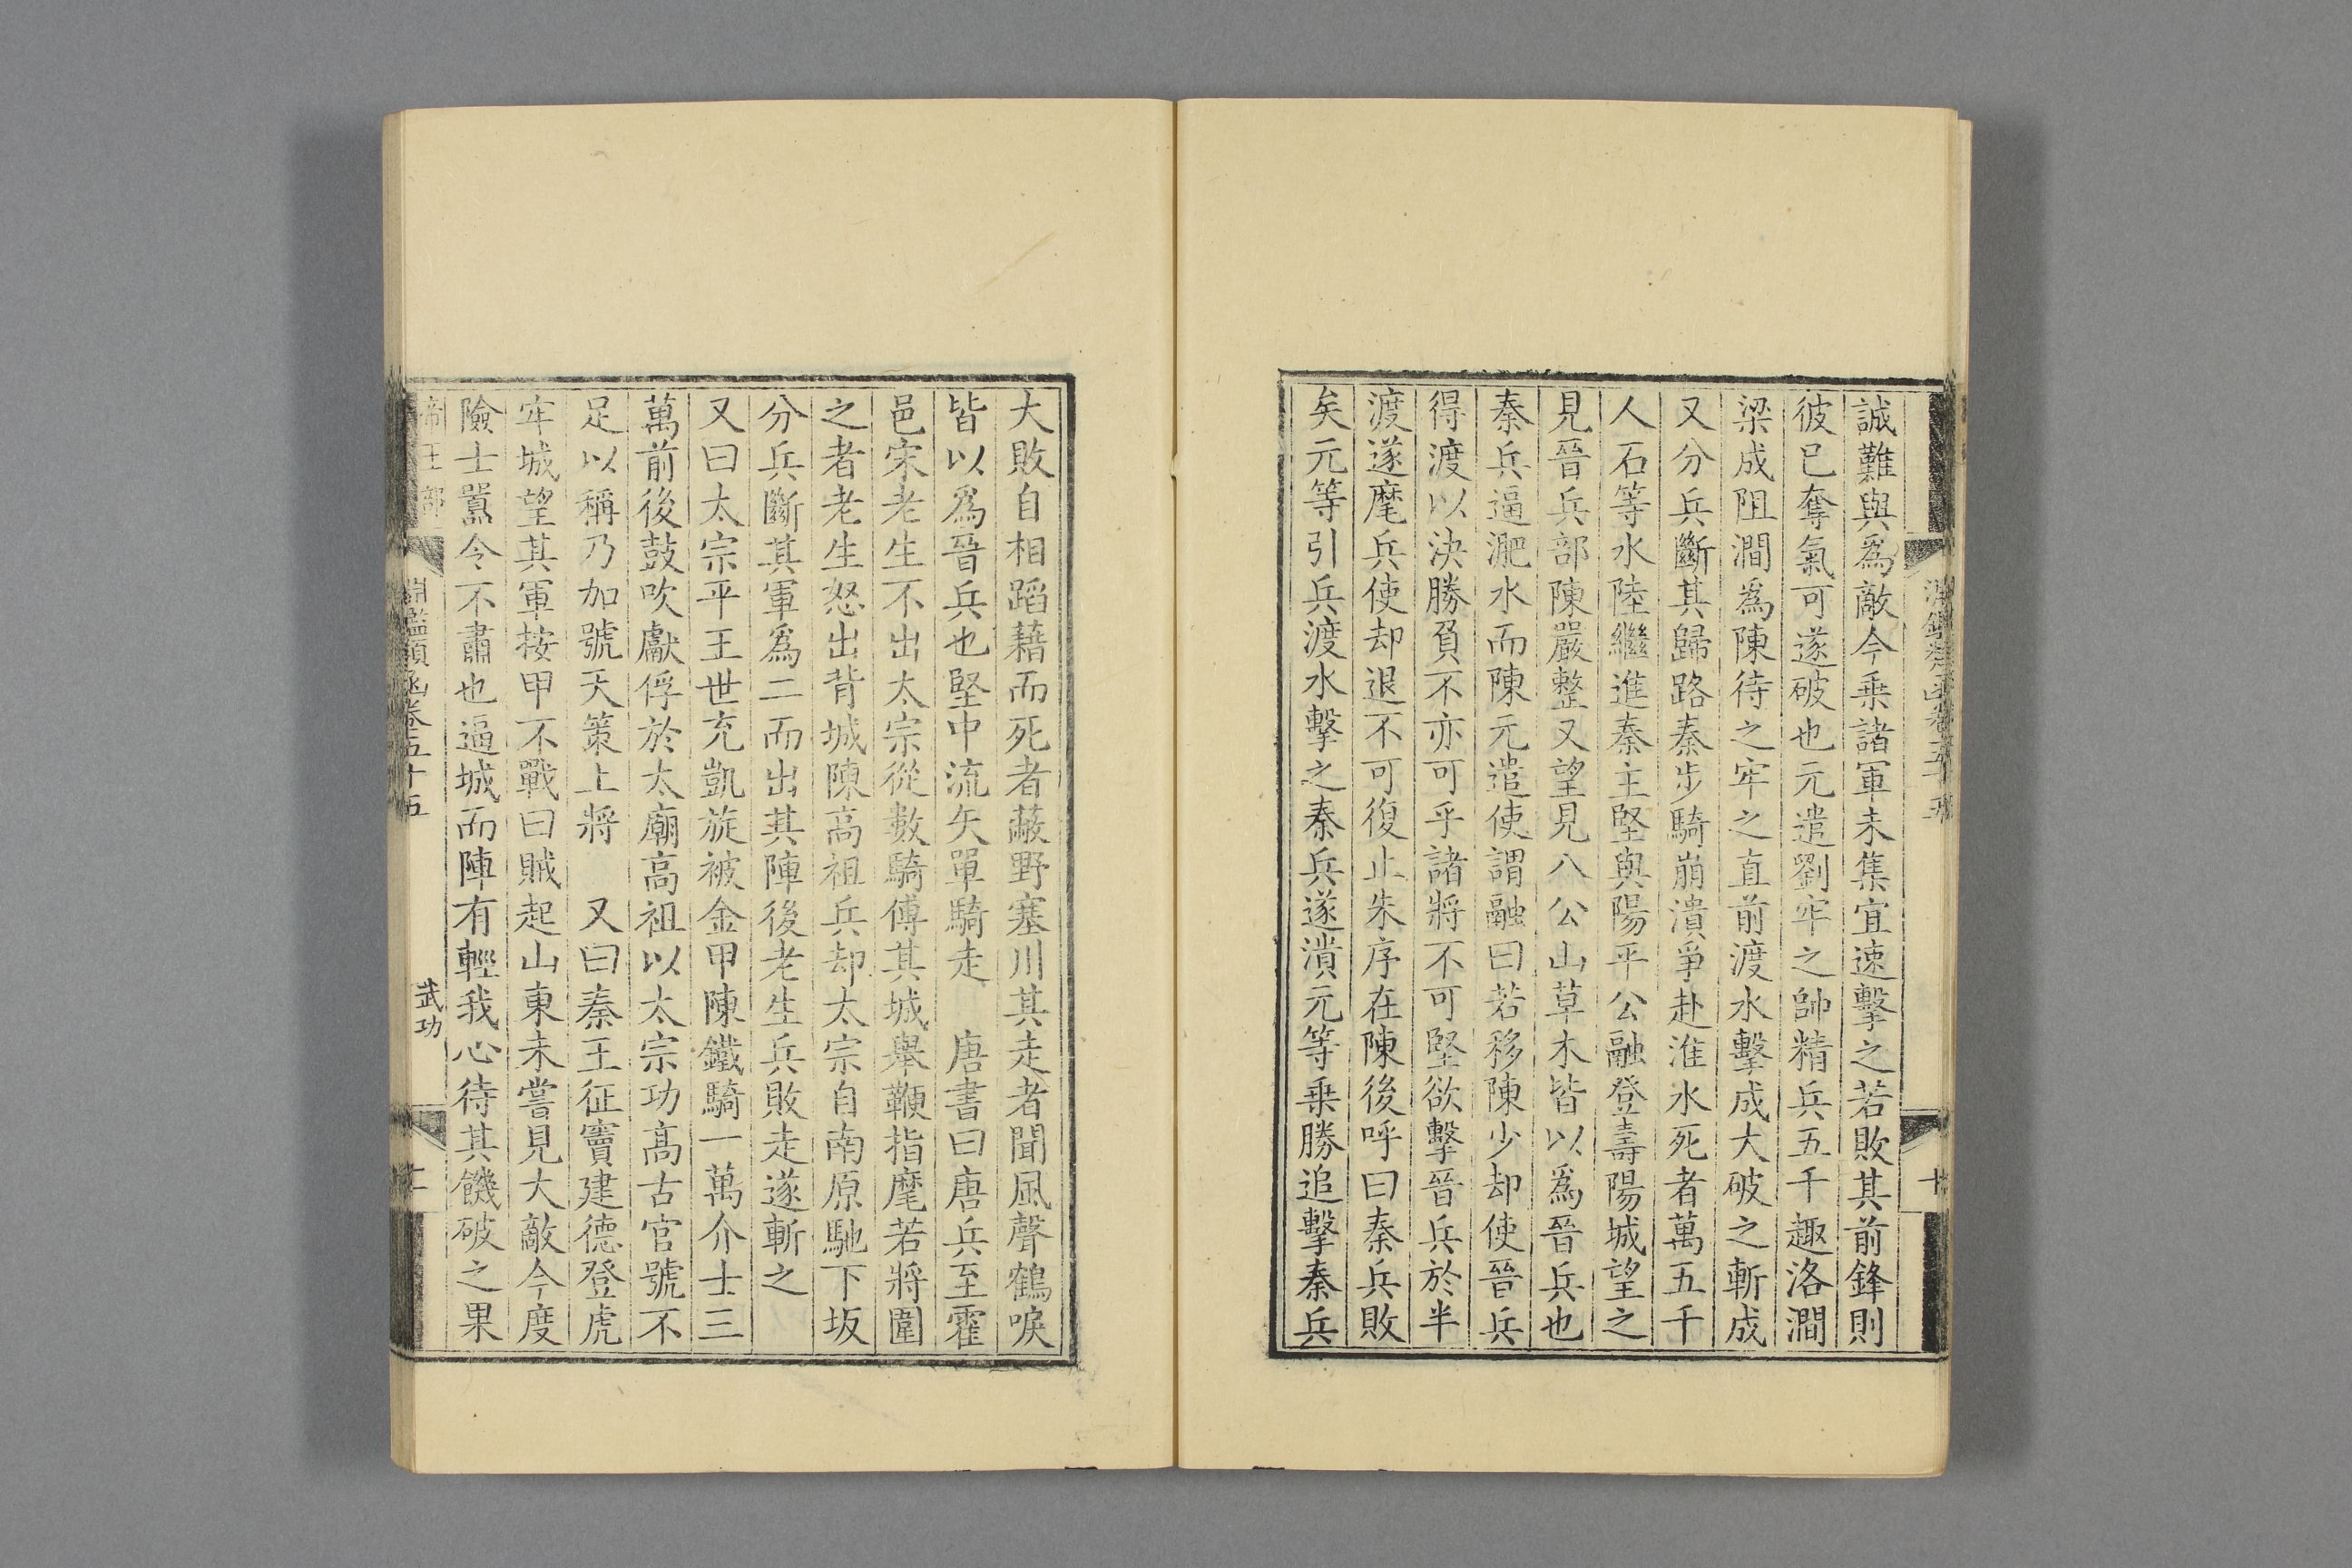 誠難與爲敵今乗諸軍未集宜速擊之若敗其前鋒則
彼已奪氣可遂破也元遣劉牢之帥精兵五千趣洛澗
梁成阻澗爲陳待之牢之直前渡水擊成大破之斬成
又分兵斷其歸路秦步騎崩潰爭赴淮水死者萬五千
人石等水陸繼進秦主堅與陽平公融登壽陽城望之
見晉兵部陳嚴整又望見八公山草木皆以爲晉兵也
秦兵逼淝水而陳元遣使謂融曰若移陳少却使晉兵
得渡以決勝負不亦可乎諸將不可堅欲擊晉兵於半
渡遂麾兵使却退不可復止朱序在陳後呼曰秦兵敗
矣元等引兵渡水擊之秦兵遂潰元等乗勝追擊秦兵
大敗自相蹈藉而死者蔽野塞川其走者聞風聲鶴唳
皆以爲晉兵也堅中流矢單騎走　唐書曰唐兵至霍
邑宋老生不出太宗從數騎傅其城舉鞭指麾若將圍
之者老生怒出背城陳高祖兵却太宗自南原馳下坂
分兵斷其軍爲二而出其陣後老生兵敗走遂斬之
又曰太宗平王世充凱旋被金甲陳鐵騎一萬介士三
萬前後鼓吹獻俘於太廟高祖以太宗功高古官號不
足以稱乃加號天策上將　又曰秦王征竇建德登虎
牢城望其軍按甲不戰曰賊起山東未嘗見大敵今度
險士囂令不肅也逼城而陣有輕我心待其饑破之果
帝王部
淵鑑類函卷五十五
武功